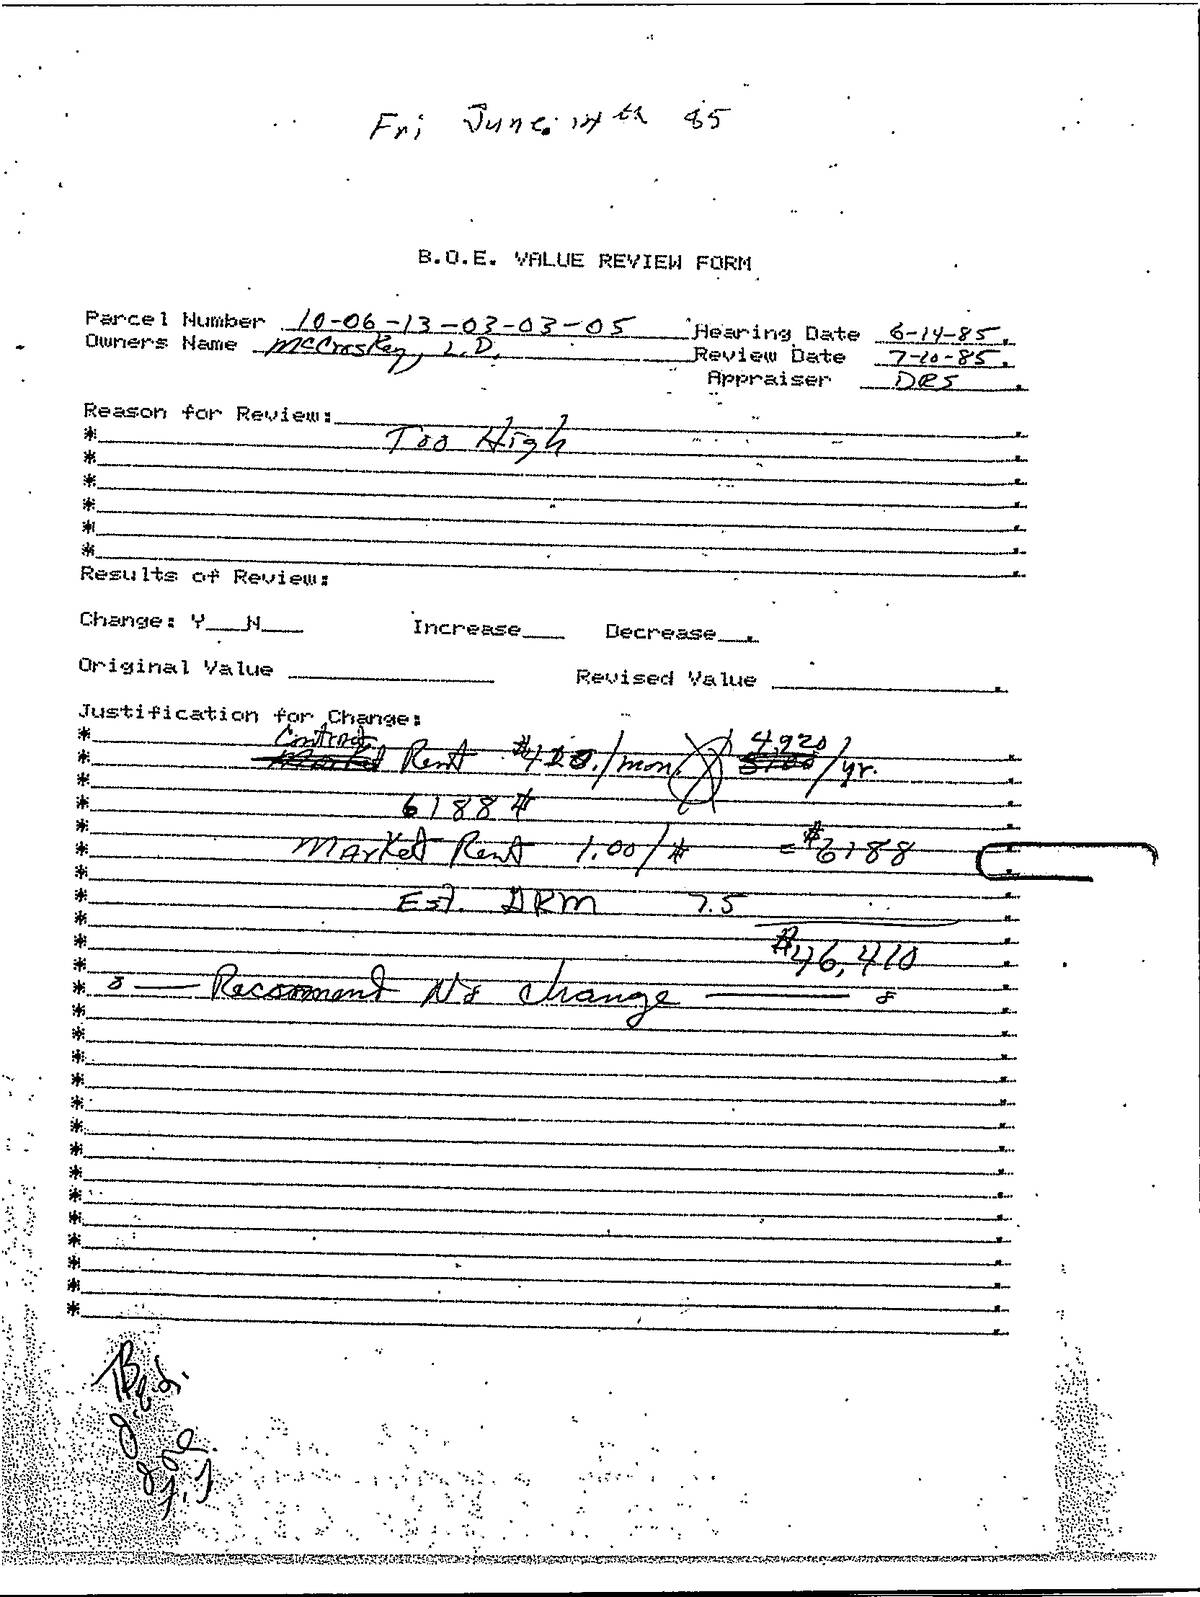 Fri June 14th 85
B.O.E. VALUE REVIEW FORM
Parcel Number 10-06-13-03-03-05 Hearing Date 6-14-85.
Owners Name McCroskey, L.D. Review Date 7-10-85.
Appraiser DRS.
Reason for Review:
* Too High
*
*
*
*
*
Results of Review:
Change: Y___N___ Increase___ Decrease___.
Original Value Revised Value
Justification for Change:
* Contract
* Market Rent /mon. 4920 /yr.
*
* 6188 #
*
* Market Rent 1.00/# = $6188
*
* Est. GRM 7.5
*
* $46,410
*
* Recomment No change
*
*
*
*
*
*
*
*
*
*
*
*
*
*